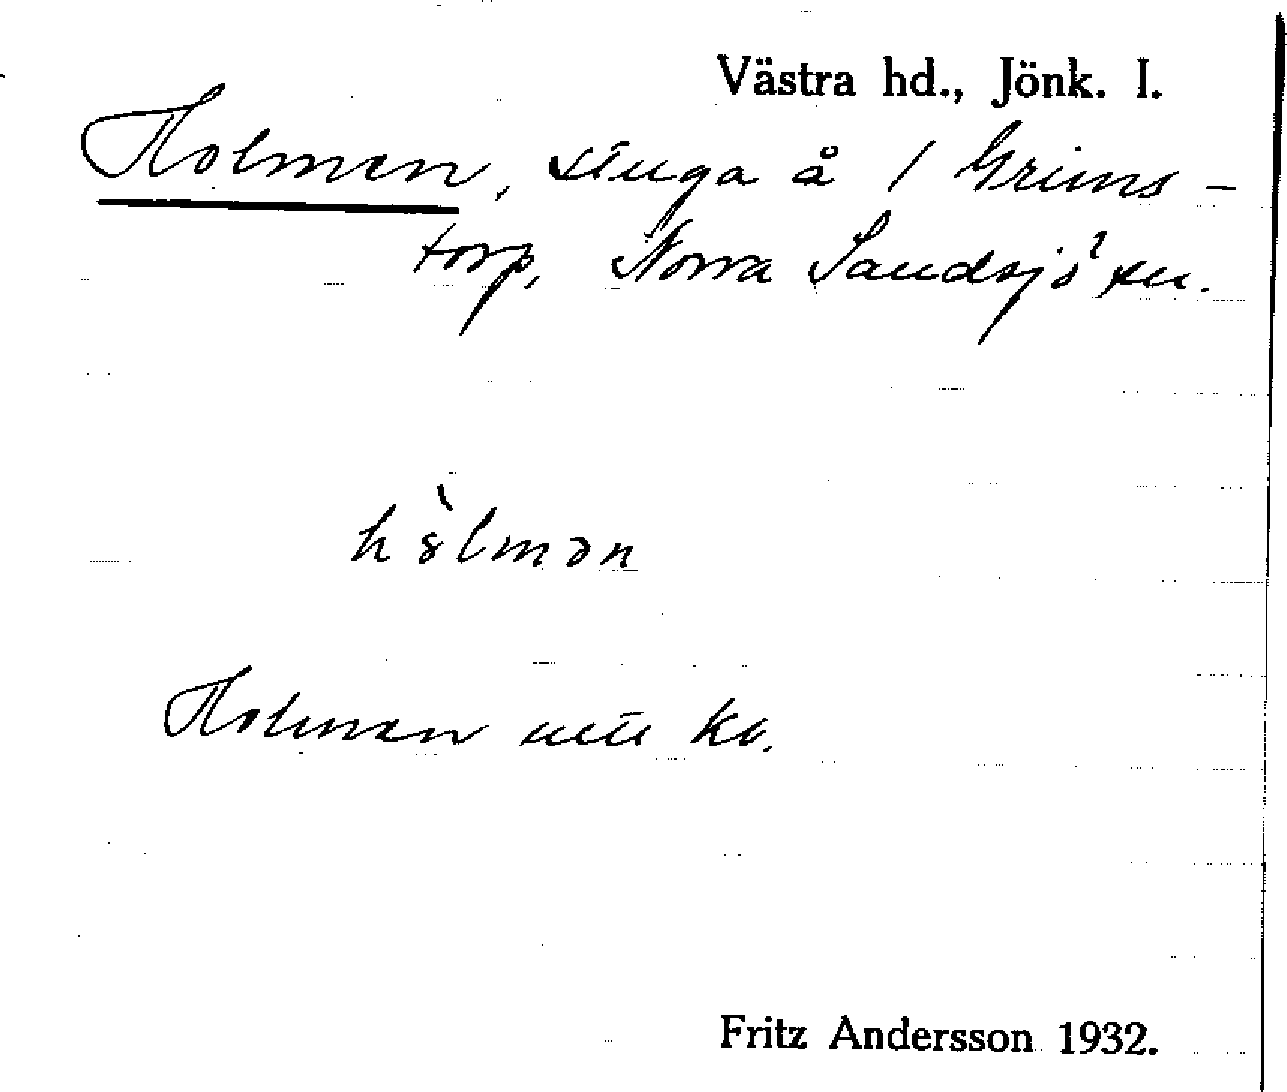 Västra hd., Jönk. l.
Holmen, stuga å 1 Grims-
torp, Norra Sandsjö sn.
hòlmən
Holmen utu kv.
Fritz Andersson 1932.